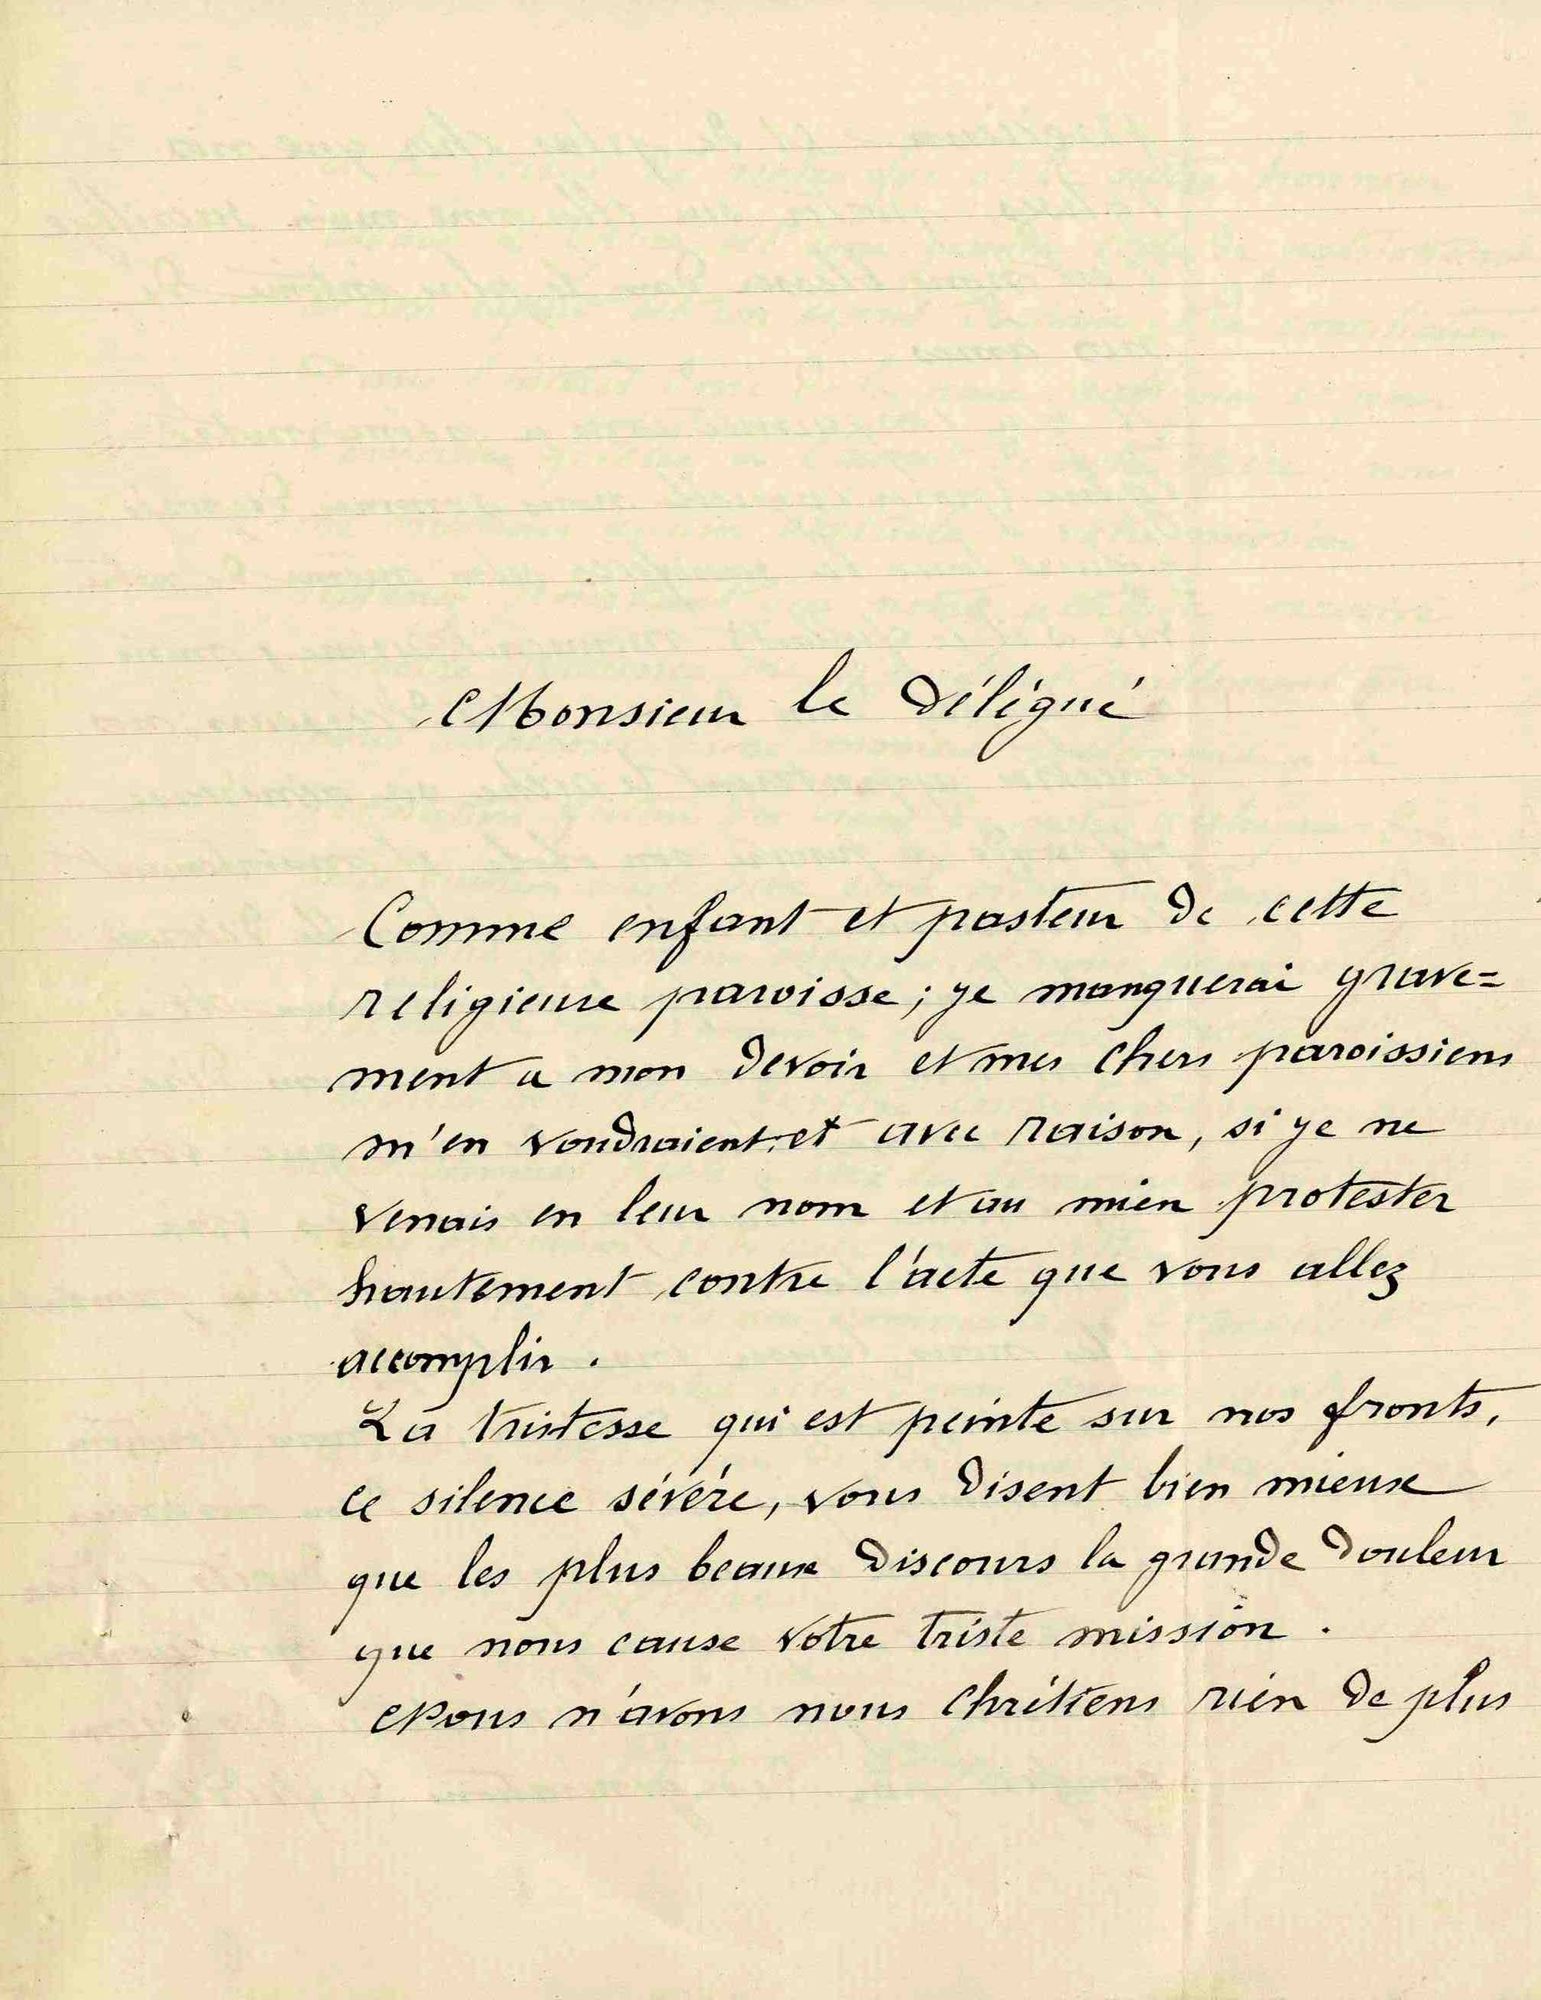 Monsieur le Délégué
Comme enfant et pasteur de cette
religieuse paroisse ; je manquerai grave=
ment a mon devoir et mes chers paroissiens
m'en voudraient, et avec raison, si je ne
venais en leur nom et au mien protester
hautement contre l'acte que vous allez
accomplir .
La tristesse qui est peinte sur nos fronts,
ce silence sévére, vous disent bien mieux
que les plus beaux discours la grande douleur
que nous cause votre triste mission .
Nous n'avons nous chrétiens rien de plus